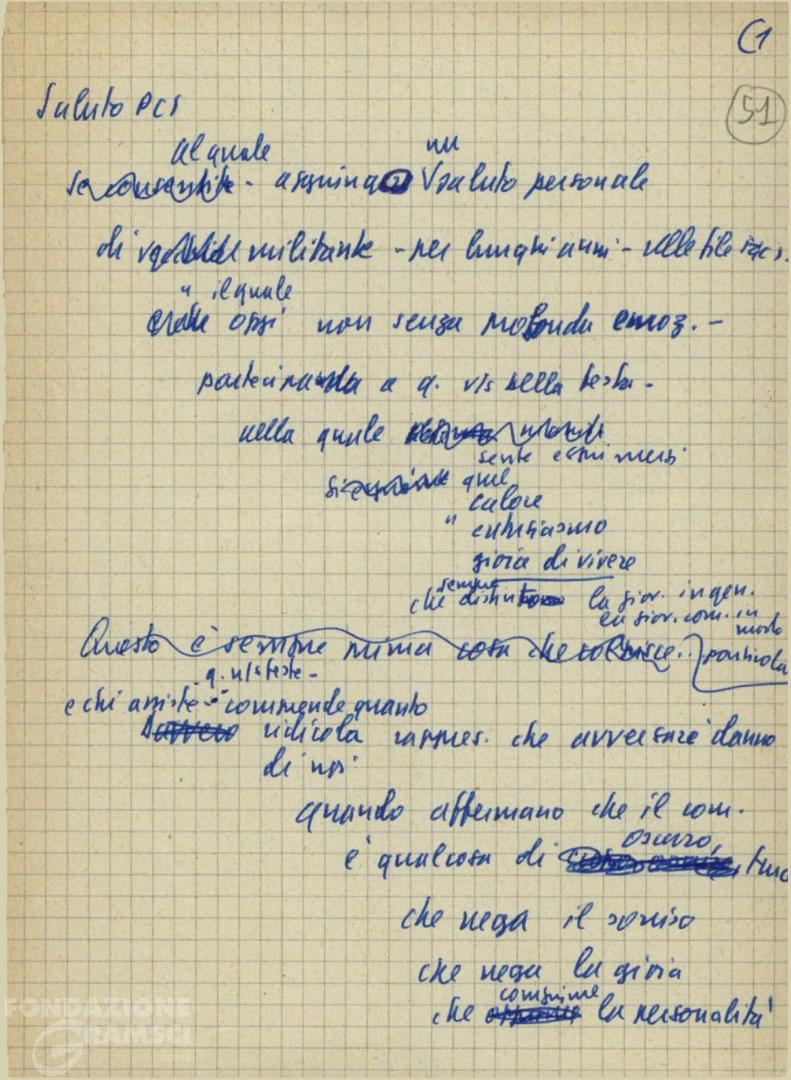 C1
51
Saluto PCI
al quale un
se consentite - aggiungo saluto personale
di militante - per lunghi anni - nelle file
" il quale
oggi non senza profonda emoz. -
partecipa a q. vs bella festa -
nella quale
sente esprimersi
si esprime quel
calore
" entusiasmo
gioia di vivere
sempre
che la giov. in gen.
la giov. com. in
modo
Questo è sempre prima cosa che colpisce.. particola
q. vs feste -
e chi assiste - comprende quanto
davvero ridicola rappres. che avversari danno
di noi
quando affermano che il com.
oscuro,
è qualcosa di
che nega il sorriso
che nega la gioia
comprime
che opprime la personalità
FONDAZIONE
GRAMSCI